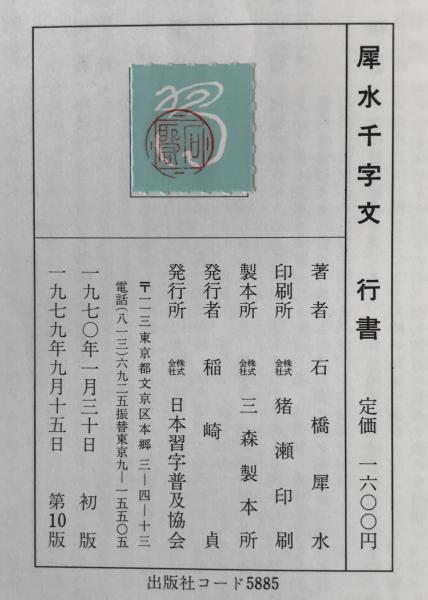 犀水千字文 行書 定価 一六〇〇円
著者 石橋犀水
印刷所 株式会社 猪瀬印刷
製本所 株式会社 三森製本所
発行者 稲崎貞
発行所 株式会社 日本習字普及協会
〒一一三東京都文京区本郷 三―四―十三
電話(八一三)六九二五振替東京九―一五五〇五
一九七〇年一月三十日 初版
一九七九年九月十五日 第10版
出版社コード5885